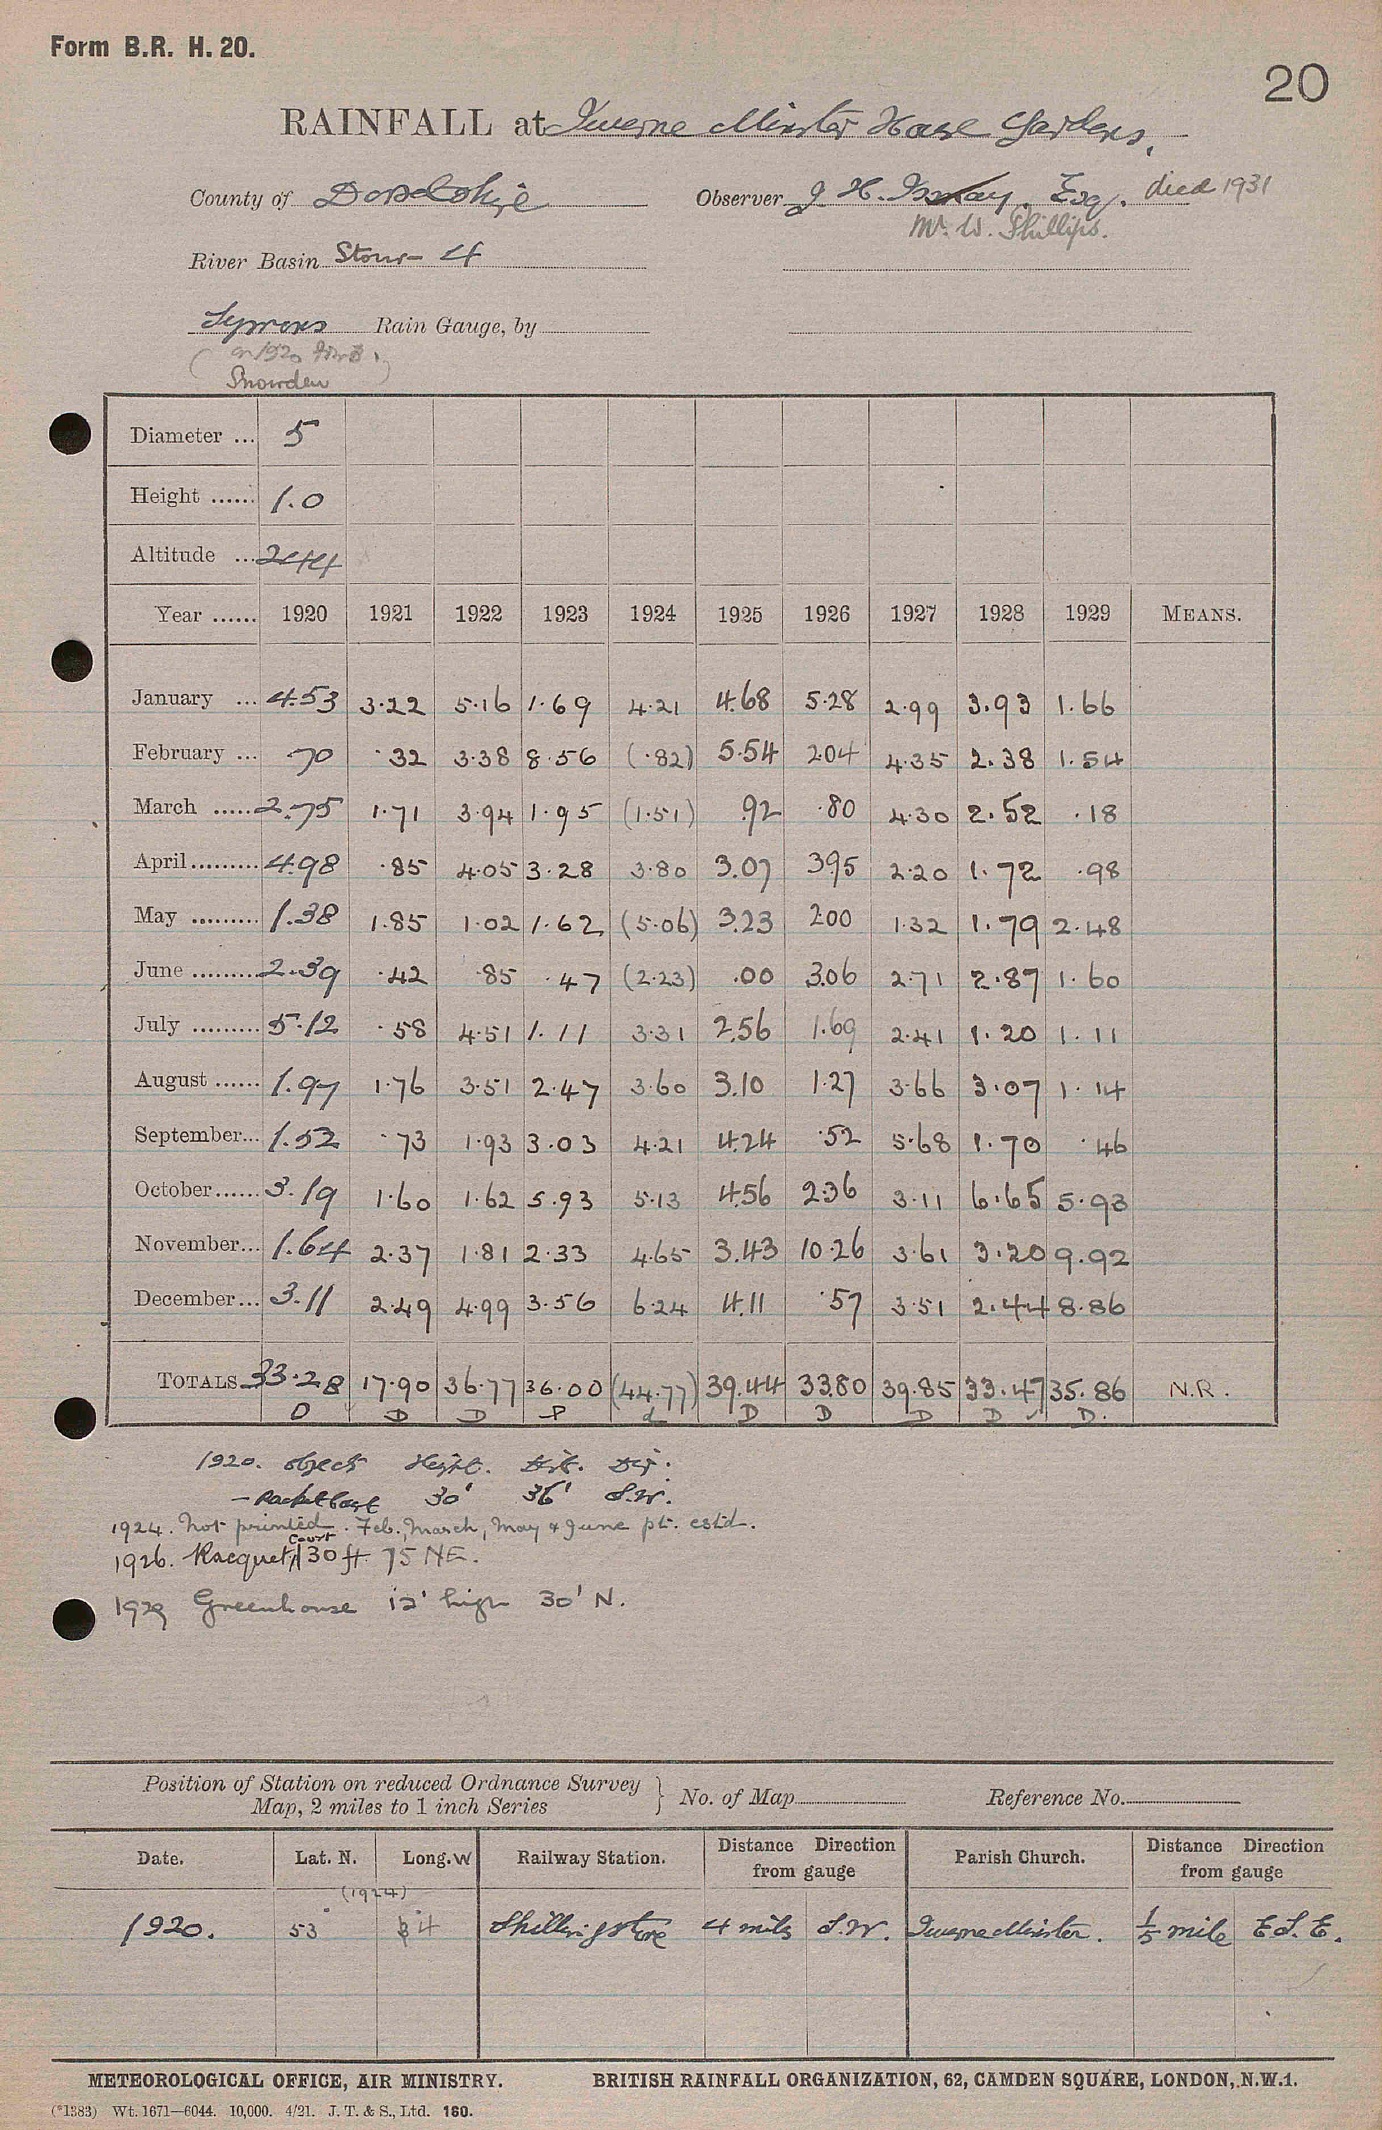 Form B.R. H. 20.
20
RAINFALL at Iwerne Minster House Gardens.
County of Dorsetshire Observer J. H. Ismay, Esq. died 1931
Mr. W. Phillips.
River Basin Stour - 4
Symons Rain Gauge, by
Snowden
Diameter ... 5
Height ...... 1.0
Altitude ... 244
Year ...... 1920 1921 1922 1923 1924 1925 1926 1927 1928 1929 MEANS.
January ... 4.53 3.22 5.16 1.69 4.21 4.68 5.28 2.99 3.93 1.66
February ... 70 .32 3.38 8.56 (.82) 5.54 2.04 4.35 2.38 1.54
March ..... 2.75 1.71 3.94 1.95 (1.51) .92 .80 4.30 2.52 .18
April ......... 4.98 .85 4.05 3.28 3.80 3.07 3.95 2.20 1.72 .98
May ......... 1.38 1.85 1.02 1.62 (5.06) 3.23 2.00 1.32 1.79 2.48
June ......... 2.39 .42 .85 .47 (2.23) .00 3.06 2.71 2.87 1.60
July ......... 5.12 .58 4.51 1.11 3.31 2.56 1.69 2.41 1.20 1.11
August ...... 1.97 1.76 3.51 2.47 3.60 3.10 1.27 3.66 3.07 1.14
September... 1.52 .73 1.93 3.03 4.21 4.24 .52 5.68 1.70 .46
October ...... 3.19 1.60 1.62 5.93 5.13 4.56 2.36 3.11 6.65 5.93
November... 1.64 2.37 1.81 2.33 4.65 3.43 10.26 3.61 3.20 9.92
December... 3.11 2.49 4.99 3.56 6.24 4.11 .57 3.51 2.44 8.86
TOTALS 33.28 17.90 36.77 36.00 (44.77) 39.44 33.80 39.85 33.47 35.86 N.R.
D D D P d D D D D D.
1920. Objects Height. Dist. Dir.
— Racket Court 30' 36' S.W.
1924. Not printed. Feb., March, May & June pt. estd.
1926. Racquet Court 30 ft. 75 NE.
1929 Greenhouse 12' high 30' N.
Position of Station on reduced Ordnance Survey Map, 2 miles to 1 inch Series } No. of Map Reference No.
Date. Lat. N. Long. W Railway Station. Distance from gauge Direction Parish Church. Distance from gauge Direction
(1924)
1920. 53° 4 Shillingstone 4 mils S.W. Iwerne Minster. 1/5 mile E.S.E.
METEOROLOGICAL OFFICE, AIR MINISTRY. BRITISH RAINFALL ORGANIZATION, 62, CAMDEN SQUARE, LONDON, N.W.1.
(*1383) Wt. 1671—6044. 10,000. 4/21. J. T. & S., Ltd. 160.